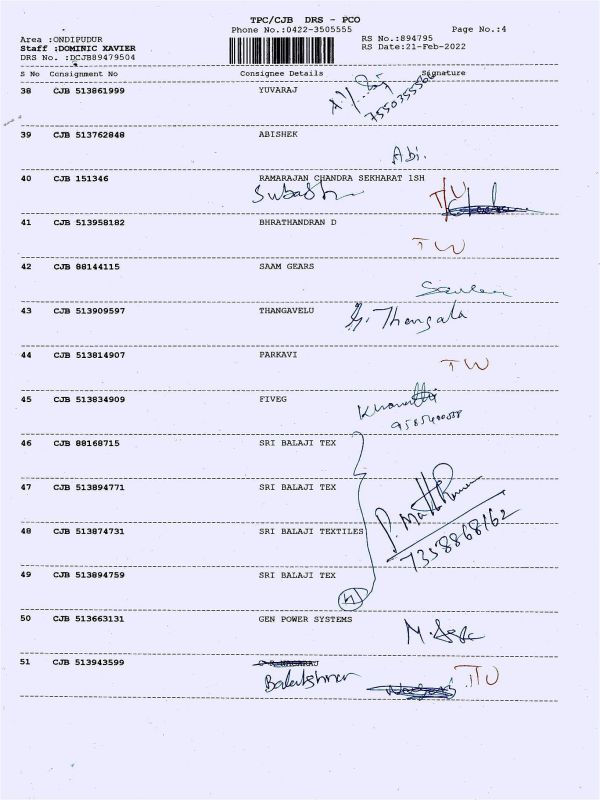 TPC/CJB DRS - PCO
Phone No.:0422-3505555
Page No.:4
Area :ONDIPUDUR
RS No.:894795
Staff :DOMINIC XAVIER
RS Date:21-Feb-2022
DRS No. :DCJB89479504
S No Consignment No Consignee Details Signature
38 CJB 513861999 YUVARAJ
7550355560
39 CJB 513762848 ABISHEK
Abi.
40 CJB 151346 RAMARAJAN CHANDRA SEKHARAT 1SH
41 CJB 513958182 BHRATHANDRAN D
42 CJB 88144115 SAAM GEARS
43 CJB 513909597 THANGAVELU
44 CJB 513814907 PARKAVI
45 CJB 513834909 FIVEG
46 CJB 88168715 SRI BALAJI TEX
47 CJB 513894771 SRI BALAJI TEX
48 CJB 513874731 SRI BALAJI TEXTILES
7358868162
49 CJB 513894759 SRI BALAJI TEX
50 CJB 513663131 GEN POWER SYSTEMS
51 CJB 513943599